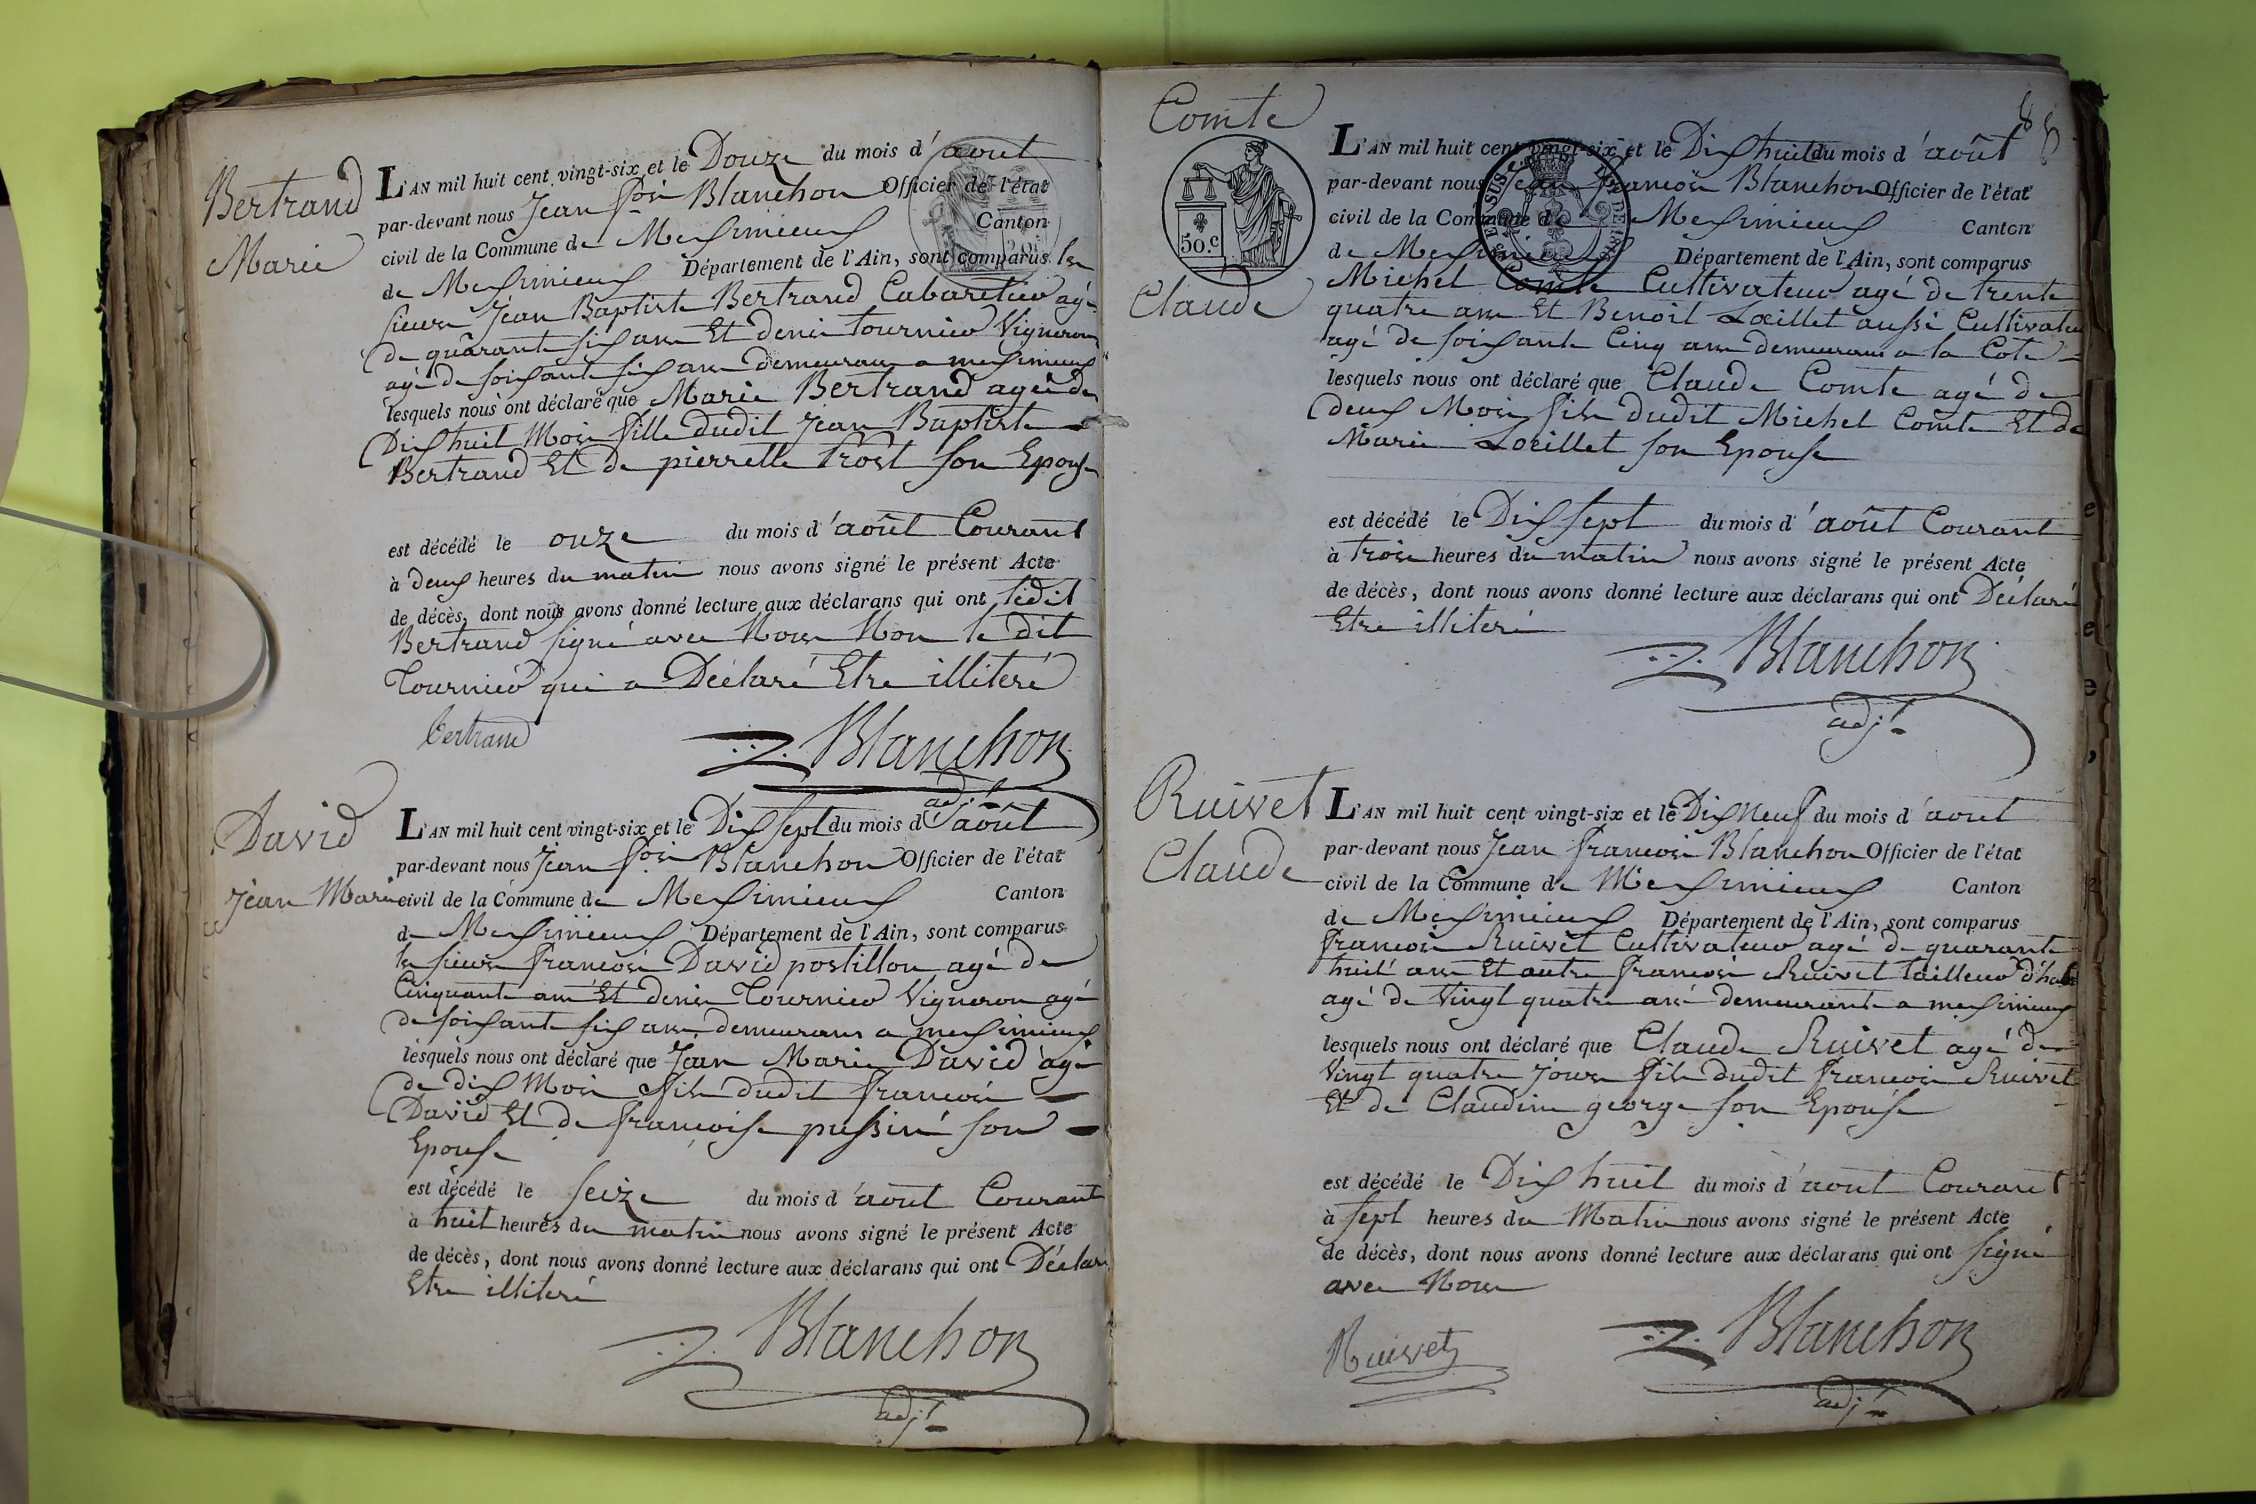 Bertrand
Marie
L'AN mil huit cent vingt-six et le Douze du mois d'aout
par-devant nous Jean fois Blanchon Officier de l'état
civil de la Commune de Meximieux Canton
de Meximieux Département de l'Ain, sont comparus les
sieurs Jean Baptiste Bertrand Cabaretier agé
de quarante six ans Et denis tournier Vigneron
agé de soixante six ans demeurans a meximieux
lesquels nous ont déclaré que Marie Bertrand agée de
Dix huit Mois fille dudit Jean Baptiste
Bertrand Et de pierrette trost son Epouse
est décédé le onze du mois d'août Courant
à deux heures du matin nous avons signé le présent Acte
de décès, dont nous avons donné lecture aux déclarans qui ont ledit
Bertrand signé avec Nous Non le dit
Tournier qui a Déclaré Etre illiteré
Bertrand
Blanchon
adjt
David
Jean Marie
L'AN mil huit cent vingt-six et le Dix sept du mois d'août
par-devant nous Jean fois Blanchon Officier de l'état
civil de la Commune de Meximieux Canton
de Meximieux Département de l'Ain, sont comparus
les sieurs françois David postillon agé de
Cinquante ans Et denis Tournier Vigneron agé
de soixante six ans demeurans a meximieux
lesquels nous ont déclaré que Jean Marie David agé
de dix Mois fils dudit françois
David Et de françoise son
Epouse
est décédé le seize du mois d'août Courant
à huit heures du matin nous avons signé le présent Acte
de décès, dont nous avons donné lecture aux déclarans qui ont Déclaré
Etre illiteré
Blanchon
adjt
85
Comte
50.c
Claude
L'AN mil huit cent vingt-six et le Dix huit du mois d'août
par-devant nous Jean françois Blanchon Officier de l'état
civil de la Commune de Meximieux Canton
de Meximieux Département de l'Ain, sont comparus
Michel Comte Cultivateur agé de trente
quatre ans Et Benoit Loeillet aussi Cultivateur
agé de soixante Cinq ans demeurans a la Cote
lesquels nous ont déclaré que Claude Comte agé de
deux Mois fils dudit Michel Comte Et de
Marie Loeillet son Epouse
est décédé le Dix sept du mois d'août Courant
à trois heures du matin nous avons signé le présent Acte
de décès, dont nous avons donné lecture aux déclarans qui ont Déclaré
Etre illiteré
Blanchon
adjt
Ruivet
Claude
L'AN mil huit cent vingt-six et le Dix Neuf du mois d'aout
par-devant nous Jean françois Blanchon Officier de l'état
civil de la Commune de Meximieux Canton
de Meximieux Département de l'Ain, sont comparus
françois Ruivet Cultivateur agé de quarante
huit ans Et autre françois Ruivet tailleur d'habi
agé de Vingt quatre ans demeurants a meximieux
lesquels nous ont déclaré que Claude Ruivet agé de
Vingt quatre jours fils dudit françois Ruivet
Et de Claudine george son Epouse
est décédé le Dix huit du mois d'aout Courant
à sept heures du Matin nous avons signé le présent Acte
de décès, dont nous avons donné lecture aux déclarans qui ont signé
avec Nous
Ruivet
Blanchon
adjt